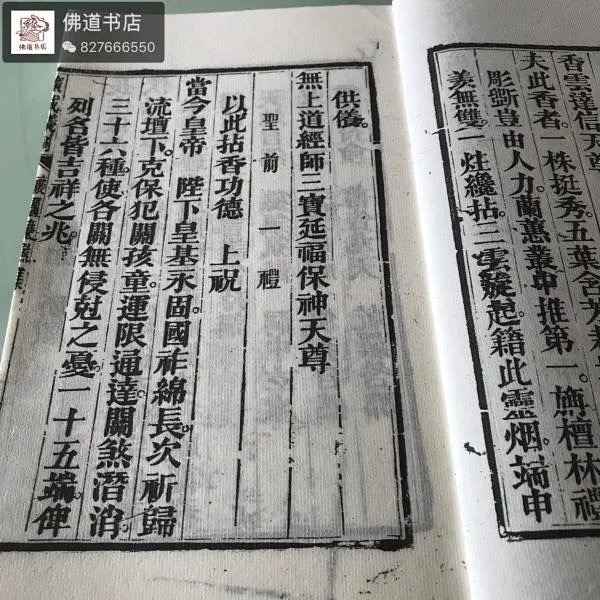 佛道书店
827666550
佛道书店
香雲達信天尊
夫此香者一株挺秀五葉含芳
彫斵豈由人力蘭蕙叢中推第一旃檀林禮
美無雙一炷纔拈三雲旋起籍此靈烟端申
供儀。
無上道經師三寶延福保神天尊
聖前一禮
以此拈香功德上祝
當今皇帝陛下皇基永固。國祚綿長。次祈歸
流壇下。克保犯關孩童。運限通達。關煞潛消。
三十六種。使各關無侵尅之憂。一十五端。俾
列名皆吉祥之兆。